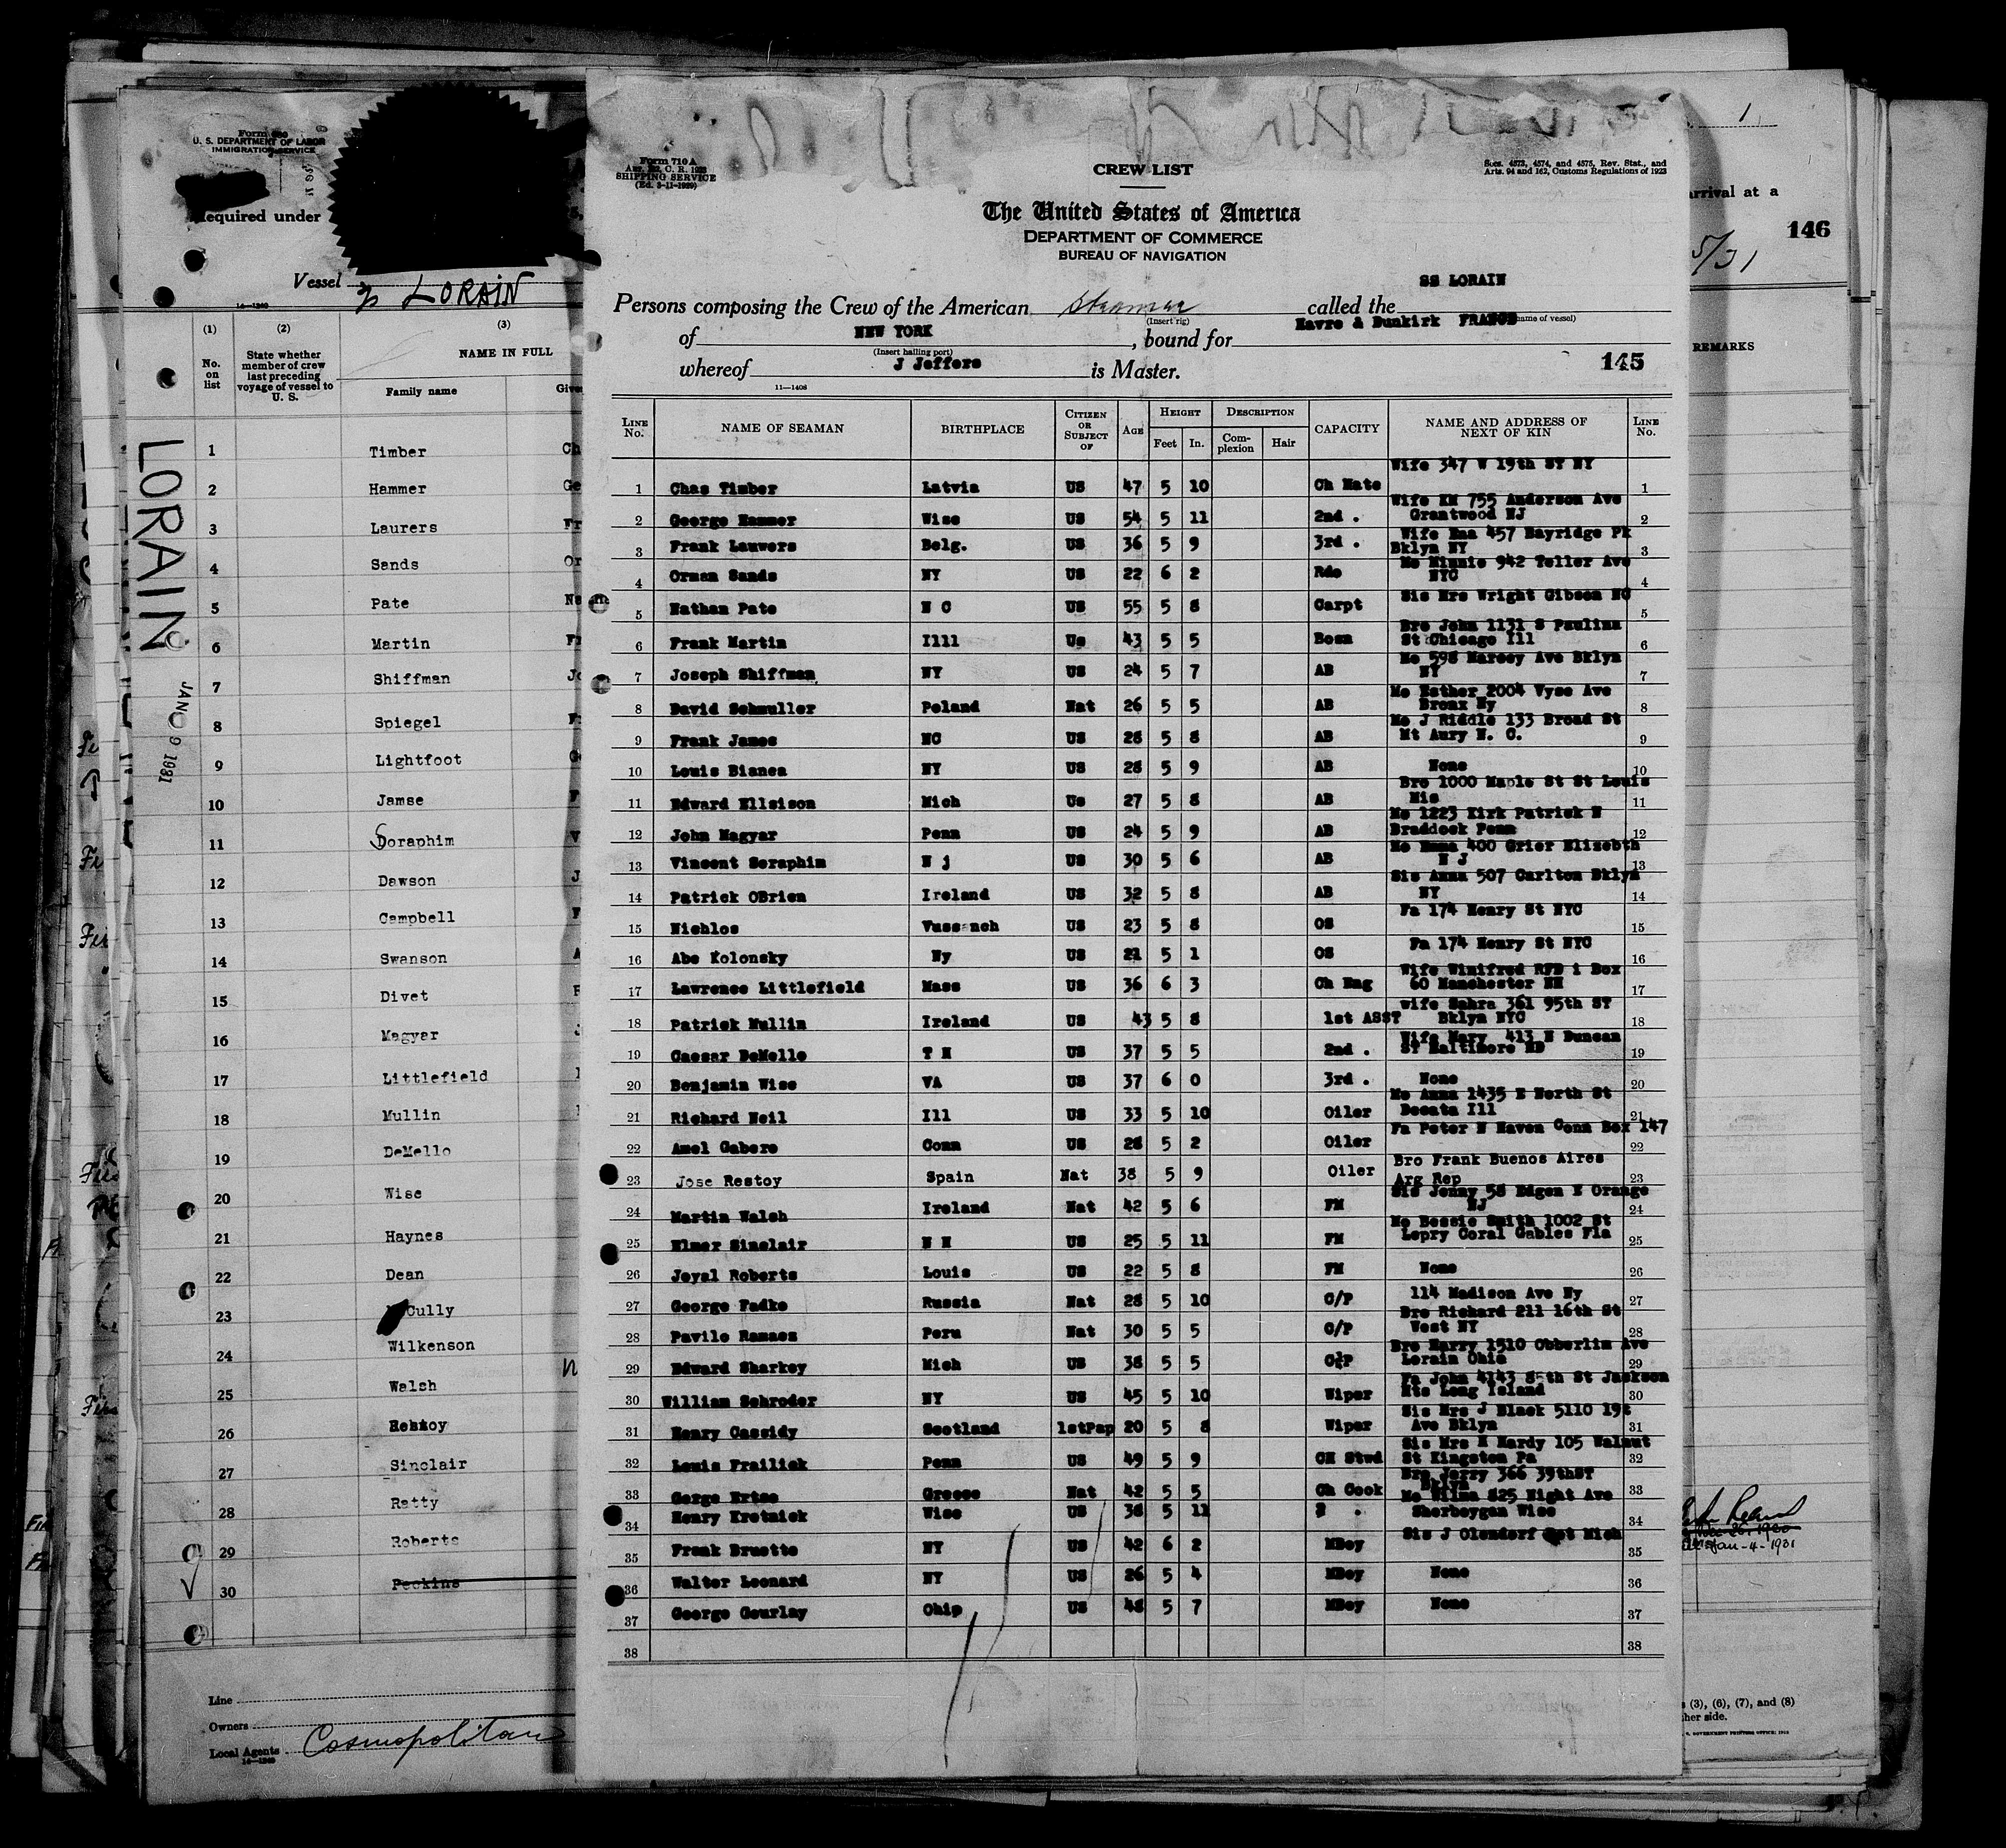 Form 680
U. S. DEPARTMENT OF LABOR
IMMIGRATION SERVICE
Required under
Vessel LORAIN
14—1240
(1) (2) (3)
No. on list
State whether member of crew last preceding voyage of vessel to U. S.
NAME IN FULL
Family name
LORAIN
JAN 9 1931
1 Timber
2 Hammer
3 Laurers
4 Sands
5 Pate
6 Martin
7 Shiffman
8 Spiegel
9 Lightfoot
10 Jamse
11 Soraphim
12 Dawson
13 Campbell
14 Swanson
15 Divet
16 Magyar
17 Littlefield
18 Mullin
19 DeMello
20 Wise
21 Haynes
22 Dean
23 Cully
24 Wilkenson
25 Walsh
26
27 Sinclair
28 Ratty
29 Roberts
30 Peckins
Line
Owners
Local Agents Cosmopolitan
14—1240
Form 710 A
SHIPPING SERVICE
(Ed. 3-11-1929)
CREW LIST
Secs. 4573, 4574, and 4575, Rev. Stat., and
Arts. 94 and 162, Customs Regulations of 1923
The United States of America
DEPARTMENT OF COMMERCE
BUREAU OF NAVIGATION
SS LORAIN
Persons composing the Crew of the American Steamer called the
(Insert rig) (name of vessel)
of NEW YORK, bound for Havre & Dunkirk FRANCE
(Insert hailing port)
whereof J Jeffers is Master.
145
11—1408
LINE No. NAME OF SEAMAN BIRTHPLACE CITIZEN OR SUBJECT OF AGE HEIGHT Feet In. DESCRIPTION Complexion Hair CAPACITY NAME AND ADDRESS OF NEXT OF KIN LINE No.
1 Chas Timber Latvia US 47 5 10 Ch Mate Wife 347 W 19th ST NY 1
2 George Hammer Wisc US 54 5 11 2nd . Wife KM 755 Anderson Ave Grantwood NJ 2
3 Frank Lauwers Belg. US 36 5 9 3rd . Wife Ema 457 Bayridge Pk Bklyn NY 3
4 Orman Sands NY US 22 6 2 Rdo Mo Minnie 942 Teller Ave NYC 4
5 Nathan Pate N C US 55 5 8 Carpt Sis Mrs Wright Gibson NC 5
6 Frank Martin Illl Us 43 5 5 Bosn Bro John 1131 S Paulina St Chicago Ill 6
7 Joseph Shiffman NY US 24 5 7 AB Mo 598 Marcey Ave Bklyn NY 7
8 David Schmuller Poland Nat 26 5 5 AB Mo Esther 2004 Vyse Ave Bronx Ny 8
9 Frank James NC US 28 5 8 AB Mo J Riddle 133 Broad St Mt Aury N. C. 9
10 Louis Bianca NY US 28 5 9 AB None 10
11 Edward Ellsison Mich Us 27 5 8 AB Bro 1000 Maple St St Louis Mis 11
12 John Magyar Penn US 24 5 9 AB Mo 1223 Kirk Patrick N Braddock Penn 12
13 Vincent Seraphim N j US 30 5 6 AB Mo Emma 400 Grier Elizebth N J 13
14 Patrick OBrien Ireland US 32 5 8 AB Sis Anna 507 Carlton Bklyn NY 14
15 Nichlos Vussanch US 23 5 8 OS Fa 174 Henry St NYC 15
16 Abe Kolonsky Ny US 21 5 1 OS Fa 174 Henry St NYC 16
17 Lawrence Littlefield Mass US 36 6 3 Ch Eng Wife Winifred RFD 1 Box 60 Manchester NH 17
18 Patrick Mullin Ireland US 43 5 8 1st ASST wife Sahra 361 95th ST Bklyn NYC 18
19 Caesar DeMello T H US 37 5 5 2nd . Wife Mary 413 N Duncan ST Baltimore MD 19
20 Benjamin Wise VA US 37 6 0 3rd . None 20
21 Richard Neil Ill US 33 5 10 Oiler Mo Anna 1435 E North St Decata Ill 21
22 Amel Gabere Conn US 28 5 2 Oiler Fa Peter N Haven Conn Box 147 22
23 Jose Restoy Spain Nat 38 5 9 Oiler Bro Frank Buenos Aires Arg Rep 23
24 Martin Walsh Ireland Nat 42 5 6 FM Sis Jenny 58 Edgen E Orange NJ 24
25 Elmer Sinclair N H US 25 5 11 FM Mo Bessie Smith 1002 St Lepry Coral Gables Fla 25
26 Joyal Roberts Louis US 22 5 8 FM None 26
27 George Fadko Russia Nat 28 5 10 C/P 114 Madison Ave Ny 27
28 Pavilo Ramaes Peru Nat 30 5 5 C/P Bro Richard 211 16th St West NY 28
29 Edward Sharkey Mich US 38 5 5 C/P Bro Harry 1510 Obberlin Ave Lorain Ohio 29
30 William Schroder NY US 45 5 10 Wiper Fa John 4143 85th St Jackson Hts Long Island 30
31 Henry Cassidy Scotland 1stPap 20 5 8 Wiper Sis Mrs J Black 5110 19t Ave Bklyn 31
32 Louis Frailick Penn US 49 5 9 CH Stwd Sis Mrs M Hardy 105 Walnut St Kingston Pa 32
33 Gorge Greece Nat 42 5 5 Ch Cook Bro Jerry 366 39thST Bklyn 33
34 Henry Kretnick Wisc US 38 5 11 2 . Mo Wilma 825 Night Ave Sherboygan Wisc 34
35 Frank Bruette NY US 42 6 2 MBoy Sis J Olendorf Mich 35
36 Walter Leonard NY US 26 5 4 MBoy None 36
37 George Gourlay Ohip US 48 5 7 MBoy None 37
38 38
1
arrival at a
146
5/31
REMARKS
Jan-4-1931
(3), (6), (7), and (8)
other side.
GOVERNMENT PRINTING OFFICE